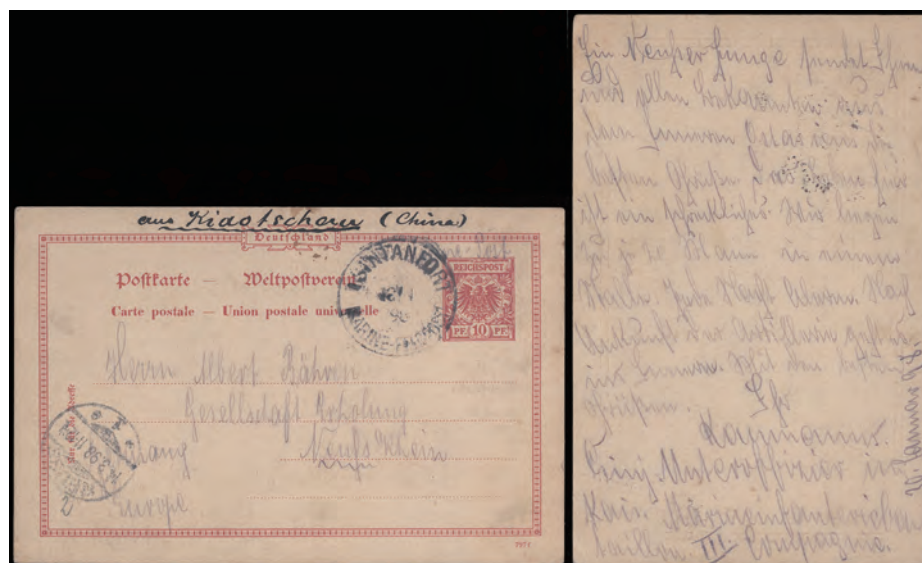 aus Kiaotschau (China)
Deutschland
Marine-Post
Postkarte — Weltpostverein
Carte postale — Union postale universelle
TSINTANFORT
98
REICHSPOST
PF 10 PF
Herrn Albert Bähren
Gesellschaft Erholung
Neuss Rhein
Europe
98
Ein Neusser Junge sendet Ihnen
und allen Bekannten aus
dem fernen Ostasien die
besten Grüße. Das Leben hier
ist ein schreckliches. Wir liegen
zu je 20 Mann in einem
Stalle. Jede Nacht Alarm. Nach
Ankunft der Artillerie geht es
ins Innere. Mit den besten
Grüßen.
Ihr
Kaumanns.
Einj. Unteroffizier im
Kais. Marineinfanteriebat
taillon. III. Compagnie.